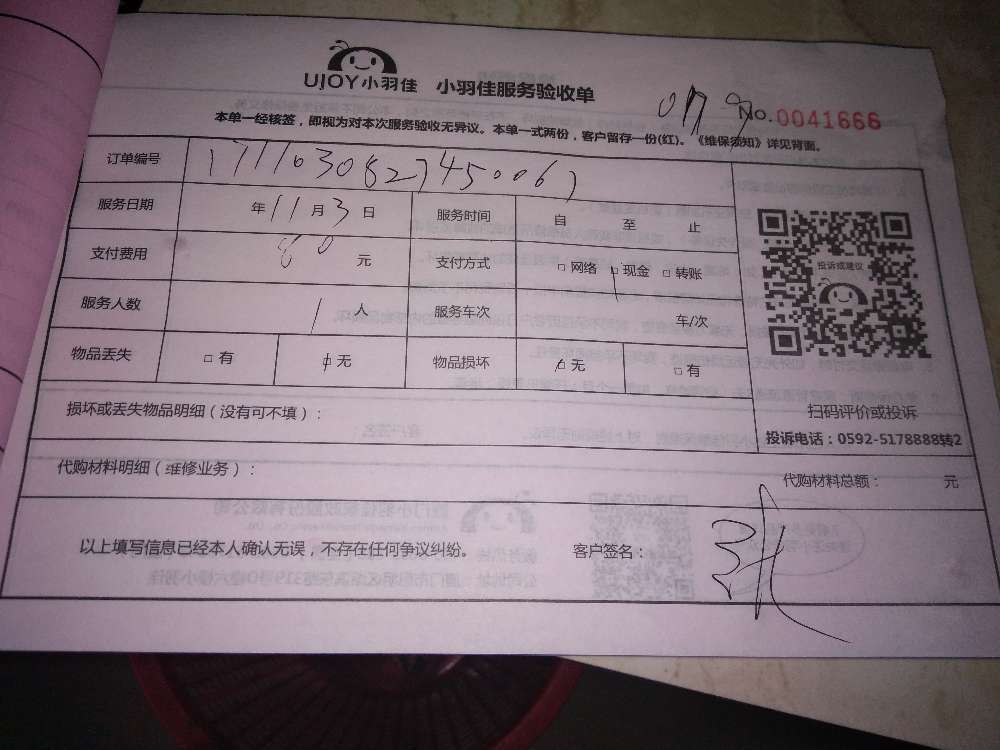 UJOY小羽佳 小羽佳服务验收单
No. 0041666
本单一经核签，即视为对本次服务验收无异议。本单一式两份，客户留存一份(红)。《维保须知》详见背面。
订单编号
服务日期 年 11 月 3 日 服务时间 自 至 止
支付费用 80 元 支付方式 □ 网络 □ 现金 □ 转账
服务人数 1 人 服务车次 车/次
物品丢失 □ 有 □ 无 物品损坏 □ 无 □ 有
投诉或建议
扫码评价或投诉
投诉电话：0592-5178888转2
损坏或丢失物品明细（没有可不填）：
代购材料明细（维修业务）： 代购材料总额： 元
以上填写信息已经本人确认无误，不存在任何争议纠纷。 客户签名：